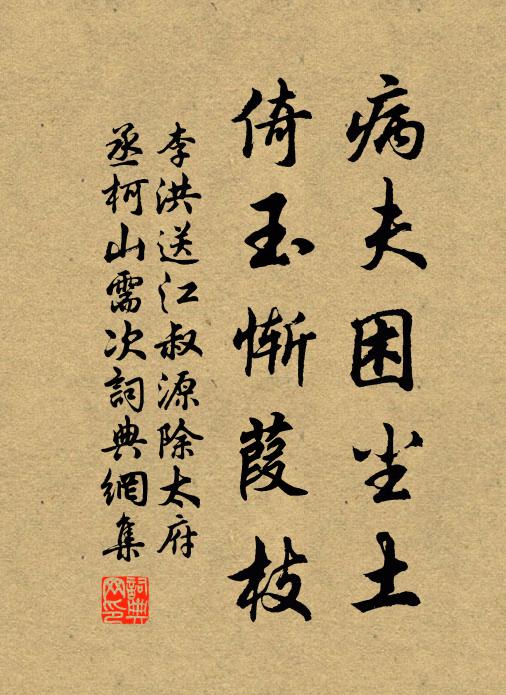 病夫困尘土
倚玉惭葭枝
李洪送江叔源除太府
丞柯山需次詞典網集
詞典
网印